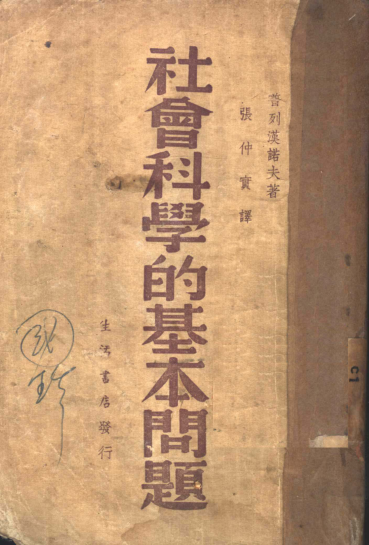 普列漢諾夫著
張仲實譯
社會科學的基本問題
生活書店發行
C1